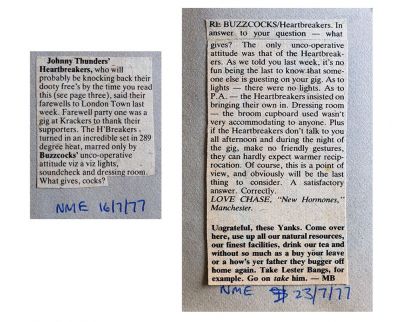 Johnny Thunders'
Heartbreakers, who will
probably be knocking back their
dooty free's by the time you read
this (see page three), said their
farewells to London Town last
week. Farewell party one was a
gig at Krackers to thank their
supporters. The H'Breakers
turned in an incredible set in 289
degree heat, marred only by
Buzzcocks' unco-operative
attitude viz a viz lights,
soundcheck and dressing room.
What gives, cocks?
NME 16/7/77
RE BUZZCOCKS/Heartbreakers. In
answer to your question — what
gives? The only unco-operative
attitude was that of the Heartbreak-
ers. As we told you last week, it's no
fun being the last to know that some-
one else is guesting on your gig. As to
lights — there were no lights. As to
P.A. — the Heartbreakers insisted on
bringing their own in. Dressing room
— the broom cupboard used wasn't
very accommodating to anyone. Plus
if the Heartbreakers don't talk to you
all afternoon and during the night of
the gig, make no friendly gestures,
they can hardly expect warmer recip-
rocation. Of course, this is a point of
view, and obviously will be the last
thing to consider. A satisfactory
answer. Correctly.
LOVE CHASE, "New Hormones,"
Manchester.
Ungrateful, these Yanks. Come over
here, use up all our natural resources,
our finest facilities, drink our tea and
without so much as a buy your leave
or a how's yer father they bugger off
home again. Take Lester Bangs, for
example. Go on take him. — MB
NME 23/7/77